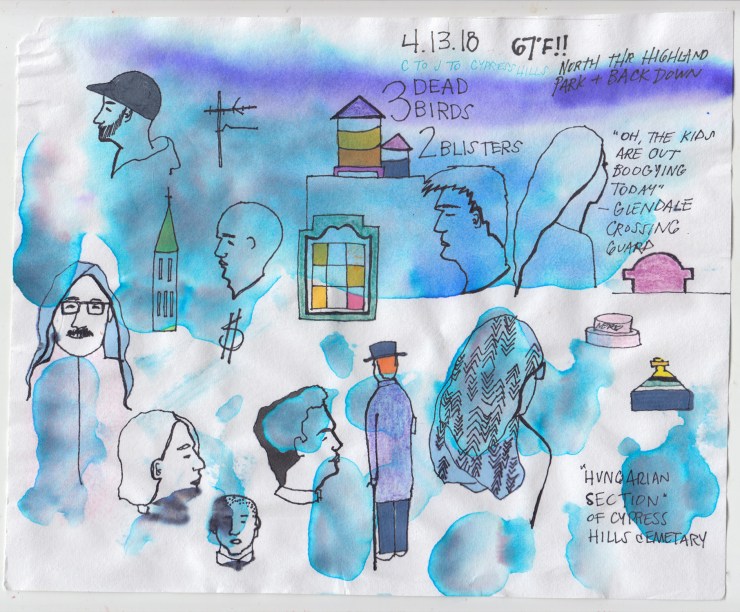 4.13.18 67°F!!
C TO J TO CYPRESS HILLS
NORTH THR HIGHLAND
PARK + BACK DOWN
3 DEAD
BIRDS
2 BLISTERS
"OH, THE KIDS
ARE OUT
BOOGYING
TODAY"
- GLENDALE
CROSSING
GUARD
$
"HUNGARIAN
SECTION"
OF CYPRESS
HILLS CEMETARY